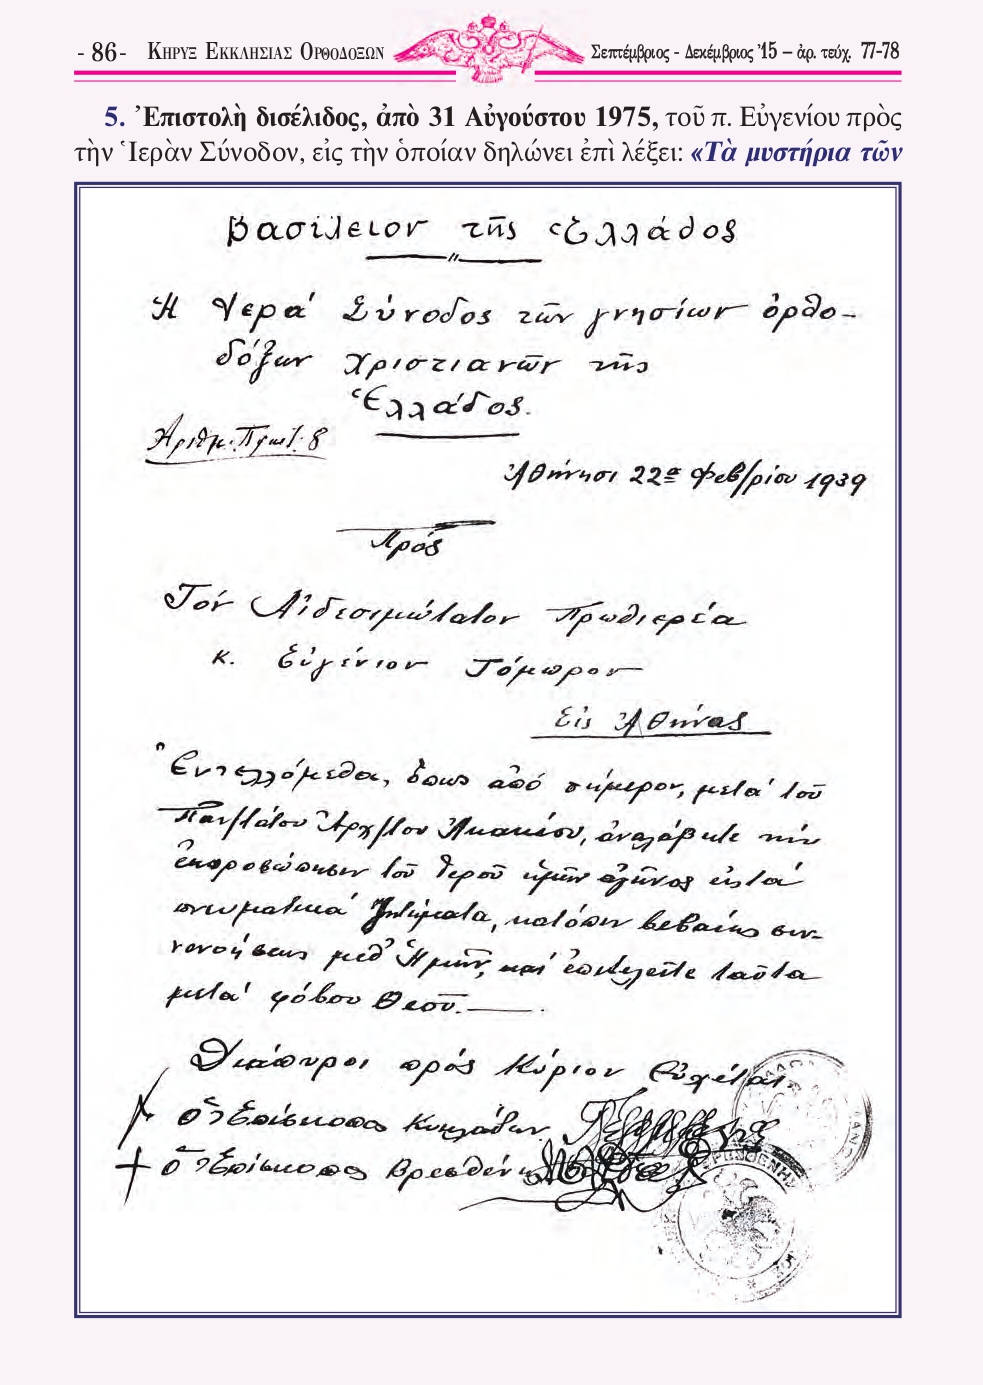 - 86 - ΚΗΡΥΞ ΕΚΚΛΗΣΙΑΣ ΟΡΘΟΔΟΞΩΝ
Σεπτέμβριος - Δεκέμβριος '15 – ἀρ. τεύχ. 77-78
5. Ἐπιστολὴ δισέλιδος, ἀπὸ 31 Αὐγούστου 1975, τοῦ π. Εὐγενίου πρὸς
τὴν Ἱερὰν Σύνοδον, εἰς τὴν ὁποίαν δηλώνει ἐπὶ λέξει: «Τὰ μυστήρια τῶν
Βασίλειον τῆς Ἑλλάδος
Η Ἱερά Σύνοδος τῶν γνησίων ὀρθο-
δόξων χριστιανῶν τῆς
Ἑλλάδος.
Ἀριθμ. Πρωτ. 8
Ἀθήνησι 22α Φεβ/ρίου 1939
Πρός
Τόν Αἰδεσιμώτατον Πρωθιερέα
κ. Εὐγένιον Τόμπρον
Εἰς Ἀθήνας
Ἐντελλόμεθα, ὅπως ἀπό σήμερον, μετά τοῦ
Παν/τάτου Ἀρχ/του Ἀκακίου, ἀναλάβητε τήν
ἐκπροσώπησιν τοῦ ἱεροῦ ἡμῶν ἀγῶνος εἰς τά
πνευματικά ζητήματα, κατόπιν βεβαίως συν-
νενοήσεως μεθ' Ἡμῶν, καί ἐπιτελεῖτε ταῦτα
μετά φόβου Θεοῦ.
Διάπυροι πρός Κύριον Εὐχέται
Ὁ Ἐπίσκοπος Κυκλάδων
+ Ὁ Ἐπίσκοπος Βρεσθένης